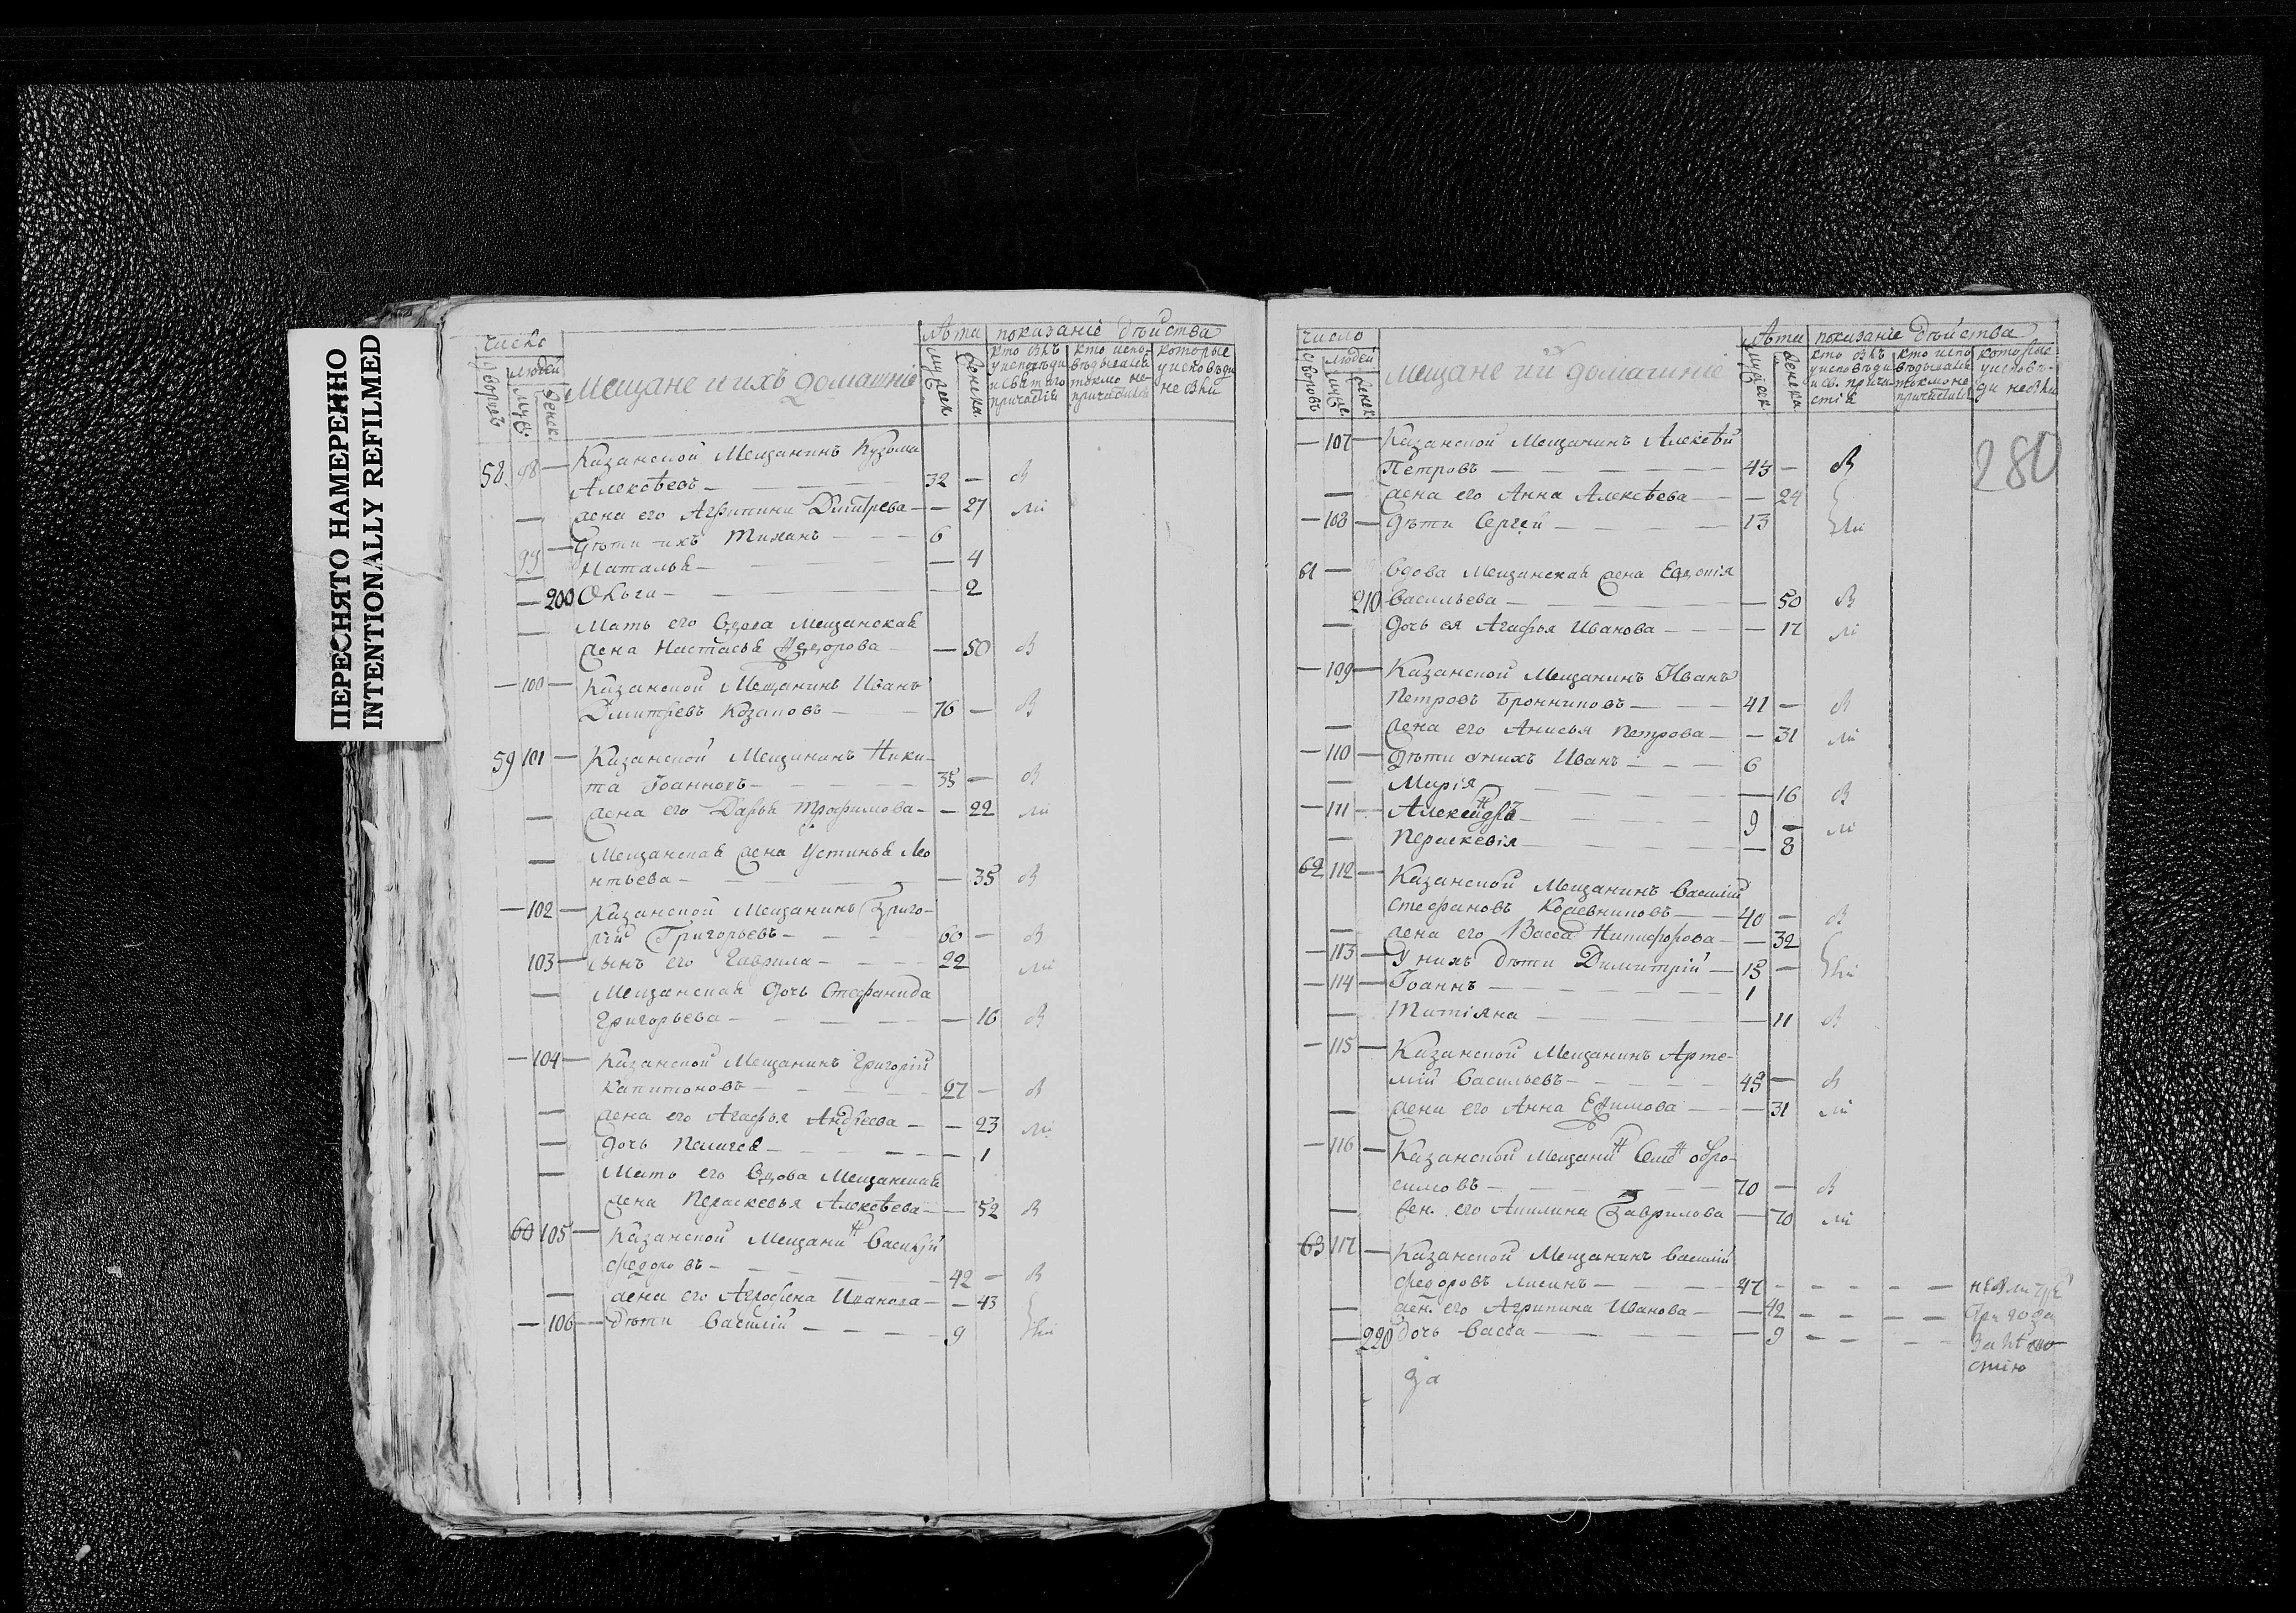 ПЕРЕСНЯТО НАМЕРЕННО
INTENTIONALLY REFILMED
число
дворовъ
людей
муж.
женск.
Мещане и ихъ домашніе
лѣта
мужеск.
женска.
показаніе дѣйства
кто былъ у исповѣди и святаго причастія
кто исповѣдывался токмо не причастился
которые у исповѣди не были
58 98 — Казанской Мещанинъ Кузьма
Алексѣевъ — 32 — В
— жена его Агрипина Дмитрева — — 27 ли
99 — дѣти ихъ Тиханъ — 6
— Наталья — — 4
— 200 Ольга — — 2
— Мать его вдова Мещанская
жена Настасья Федорова — — 50 В
— 100 — Казанской Мещанинъ Иванъ
Дмитревъ Казаповъ — 76 — В
59 101 — Казанской Мещанинъ Ники-
та Іоанновъ — 35 — В
— жена его Дарья Трофимова — — 22 ли
— Мещанская жена Устинья Лео
нтьева — — 35 В
— 102 — Казанской Мещанинъ Григо-
рій Григорьевъ — 60 — В
103 — сынъ его Гаврила — 22 ли
— Мещанская дочь Стефанида
Григорьева — — 16 В
— 104 — Казанской Мещанинъ Григорій
Капитоновъ — 27 — В
— жена его Агафья Андреева — — 23 ли
— дочь Пелагея — — 1
— Мать его вдова Мещанская
жена Параскевья Алексѣева — — 52 В
60 105 — Казанской Мещанинъ Василій
Федоровъ — 42 — В
— жена его Аграфена Иванова — — 43
— 106 — дѣти Василій — 9 ли
число
дворовъ
людей
муж.
женск.
Мещане и их домашніе
лѣта
мужеск.
женска.
показаніе дѣйства
кто былъ у исповѣди и св. причастія
кто исповѣдывался токмо не причастился
которые у исповѣди не были
280
— 107 — Казанской Мещанинъ Алексѣй
Петровъ — 43 — В
— жена его Анна Алексѣева — — 24
— 108 — дѣти Сергей — 13 ли
61 — вдова Мещанская жена Евдокія
210 Васильева — — 50 В
— дочь ея Агафья Иванова — — 17 ли
— 109 — Казанской Мещанинъ Иванъ
Петровъ Бронниковъ — 41 — В
— жена его Анисья Петрова — — 31 ли
— 110 — дѣти у нихъ Иванъ — 6
— Марія — — 16 В
— 111 — Александръ — 9 — ли
— Параскевія — — 8
62 112 — Казанской Мещанинъ Василій
Стефановъ Кожевниковъ — 40 — В
— жена его Васса Никифорова — — 32
— 113 — У нихъ дѣти Димитрій — 15 — ли
— 114 — Іоаннъ — 1
— Татіяна — — 11 В
— 115 — Казанской Мещанинъ Арте-
мій Васильевъ — 45 — В
— жена его Анна Ефимова — — 31 ли
— 116 — Казанской Мещанинъ Семенъ обро-
симовъ — 70 — В
— жен. его Акилина Гаврилова — 70 ли
63 117 — Казанской Мещанинъ Василій
Федоровъ Лисинъ — 47 —
— жен. его Агрипина Иванова — — 42 — три года
— 220 дочь Васса — — 9 —
да